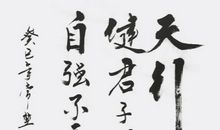 天行
健君子
自强不
癸巳年